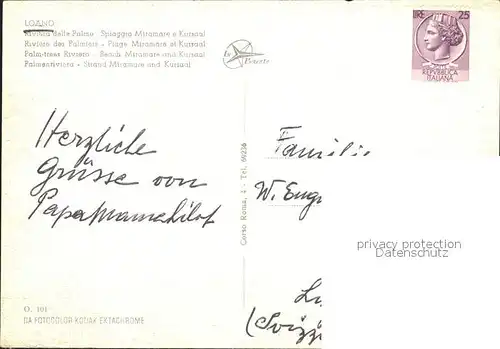 LOANO
Riviera delle Palme - Spiaggia Miramare e Kursaal
Riviera des Palmiers - Plage Miramare et Kursaal
Palm-trees Riviera - Beach Miramare and Kursaal
Palmenriviera - Strand Miramare und Kursaal
LIRE 25
REPVBBLICA
ITALIANA
Herzliche
Grüsse von
Familie
W. Eug
(Svizz
Corso Roma, 1 - Tel. 69236
privacy protection
Datenschutz
O. 101
DA FOTOCOLOR KODAK EKTACHROME